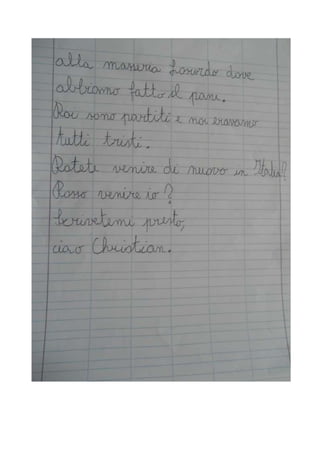 alla masseria Losurdo dove
abbiamo fatto il pane.
Poi sono partiti e noi eravamo
tutti tristi.
Potete venire di nuovo in Italia?
Posso venire io?
Scrivetemi presto,
ciao Christian.